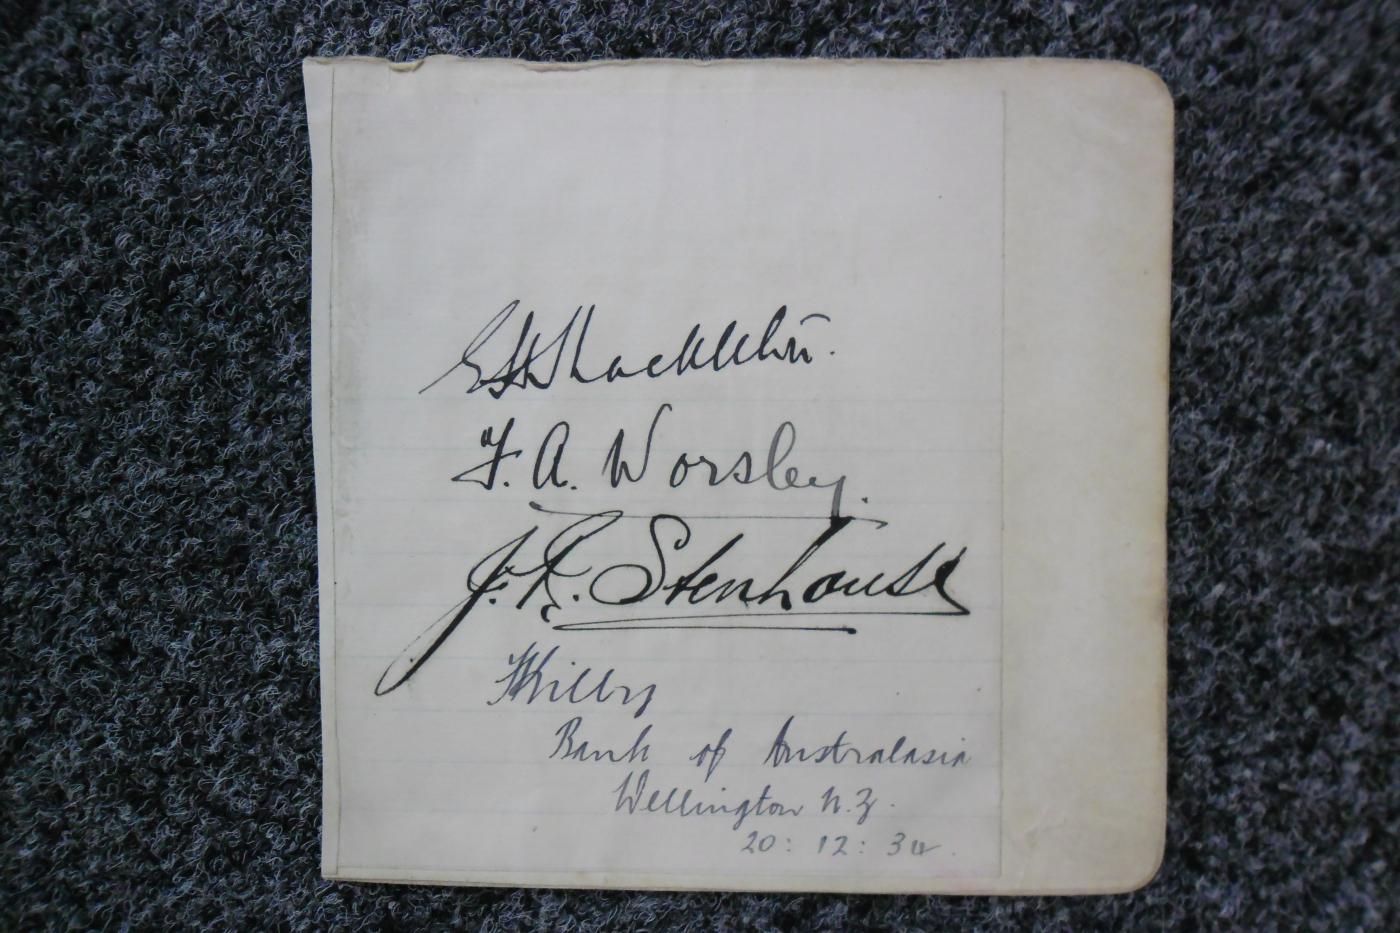 EHShackleton.
F. A. Worsley.
J. R. Stenhouse
HKilby
Bank of Australasia
Wellington N.Z.
20 : 12 : 34.